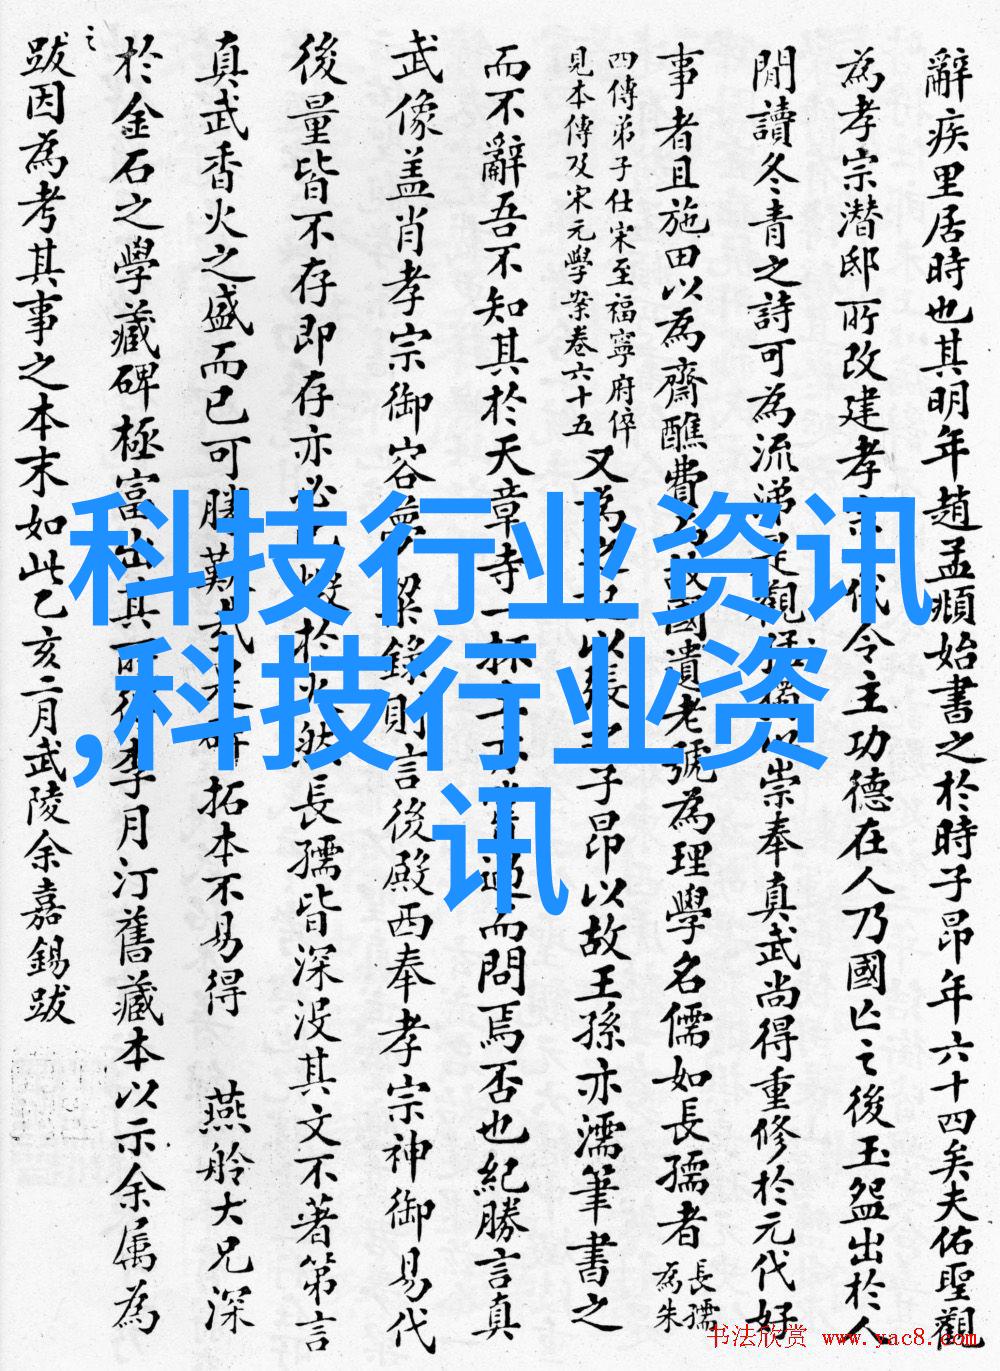 辭疾里居時也其明年趙孟頫始書之於時子昂年六十四矣夫佑聖觀
為孝宗潛邸所改建孝宗代令主功德在人乃國亡之後玉盌出於人
間讀冬青之詩可為流涕是觀猶以崇奉真武尚得重修於元代好
事者且施田以為齋醮費乃故國遺老號為理學名儒如長孺者長孺為朱
四傳弟子仕宋至福寧府倅
見本傳及宋元學案卷六十五
又為之記以張子昂以故王孫亦濡筆書之
而不辭吾不知其於天章寺一杯過而問焉否也紀勝言真
武像蓋肖孝宗御容夢粱錄則言後殿西奉孝宗神御易代
後量皆不存即存亦必於火然長孺皆深沒其文不著第言
真武香火之盛而已可勝歎哉碑拓本不易得 燕舲大兄深
於金石之學藏碑極富出其所得李月汀舊藏本以示余属為
之
跋因為考其事之本末如此乙亥二月武陵余嘉錫跋
科技行业资讯
,科技行业资
讯
书法欣赏 www.yac8.com